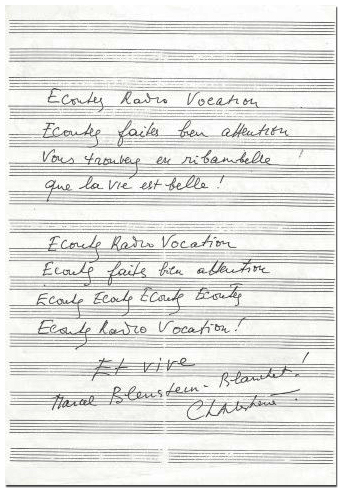 Ecoutez Radio Vocation
Ecoutez faites bien attention
Vous trouvez en ribambelle
que la vie est belle !
Ecoutez Radio Vocation
Ecoutez faites bien attention
Ecoutez Ecoutez Ecoutez Ecoutez
Ecoutez Radio Vocation !
Et vive
Marcel Bleustein-Blanchet !